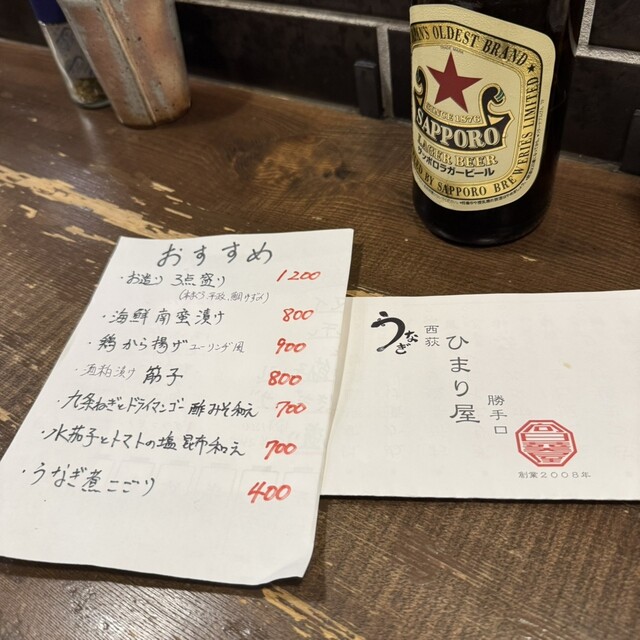 おすすめ
・お造り 3点盛り 1200
・海鮮南蛮漬け 800
・鶏から揚げ ユーリンヂ風 900
酒粕漬け 筋子 800
・九条ねぎとドライマンゴー 酢みそ和え 700
・水茄子とトマトの塩昆布和え 700
・うなぎ煮こごり 400
うなぎ
西荻
ひまり屋
勝手口
創業2008年
OLDEST BRAND
SINCE 1876
SAPPORO
LAGER BEER
サッポロラガービール
BY SAPPORO BREWERIES LIMITED